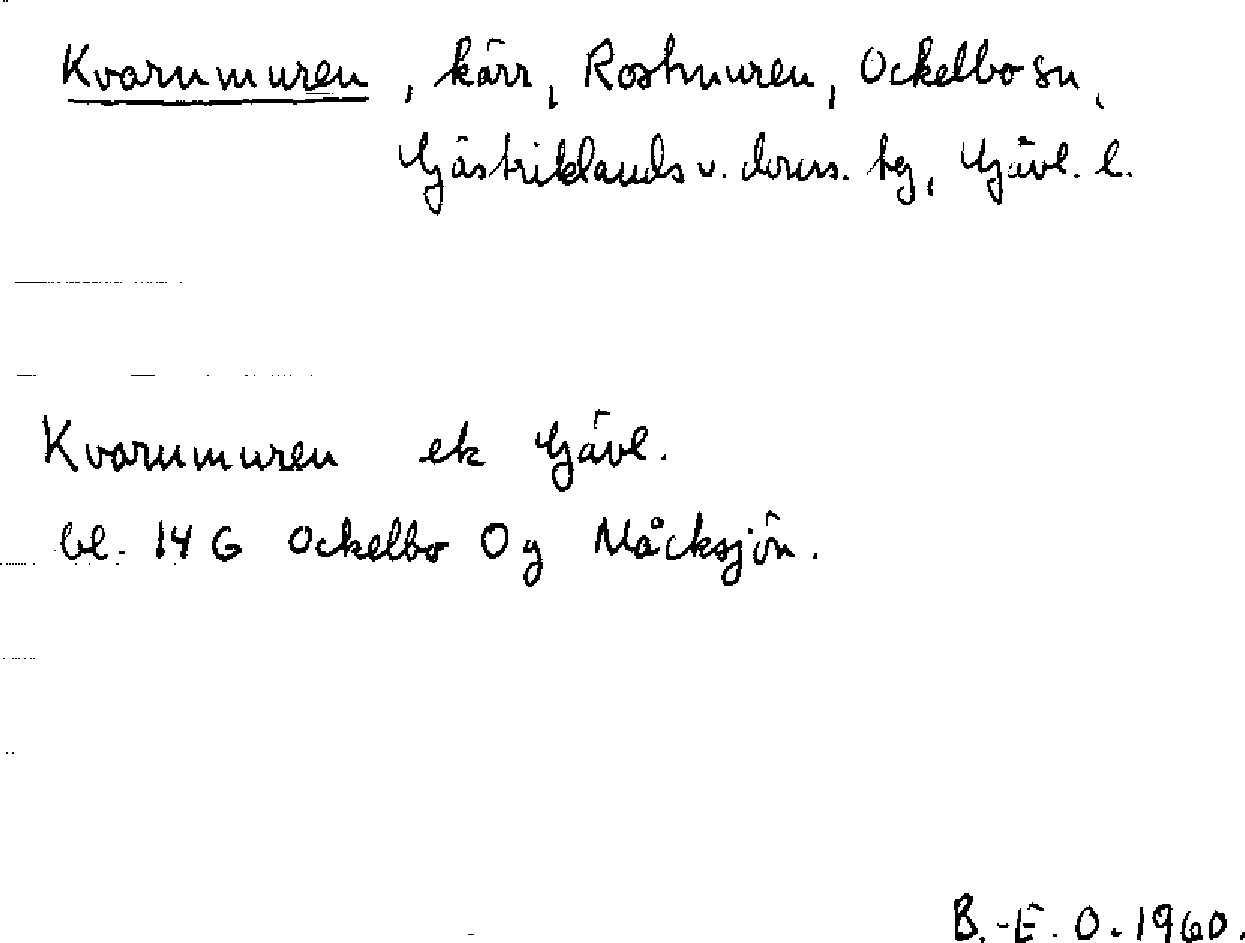 Kvarnmuren, kärr, Rostmuren, Ockelbo sn,
Gästriklands v. doms. tg, Gävl. l.
Kvarnmuren ek Gävl.
bl. 14 G Ockelbo 0 g Måcksjön.
B.-E. O. 1960.